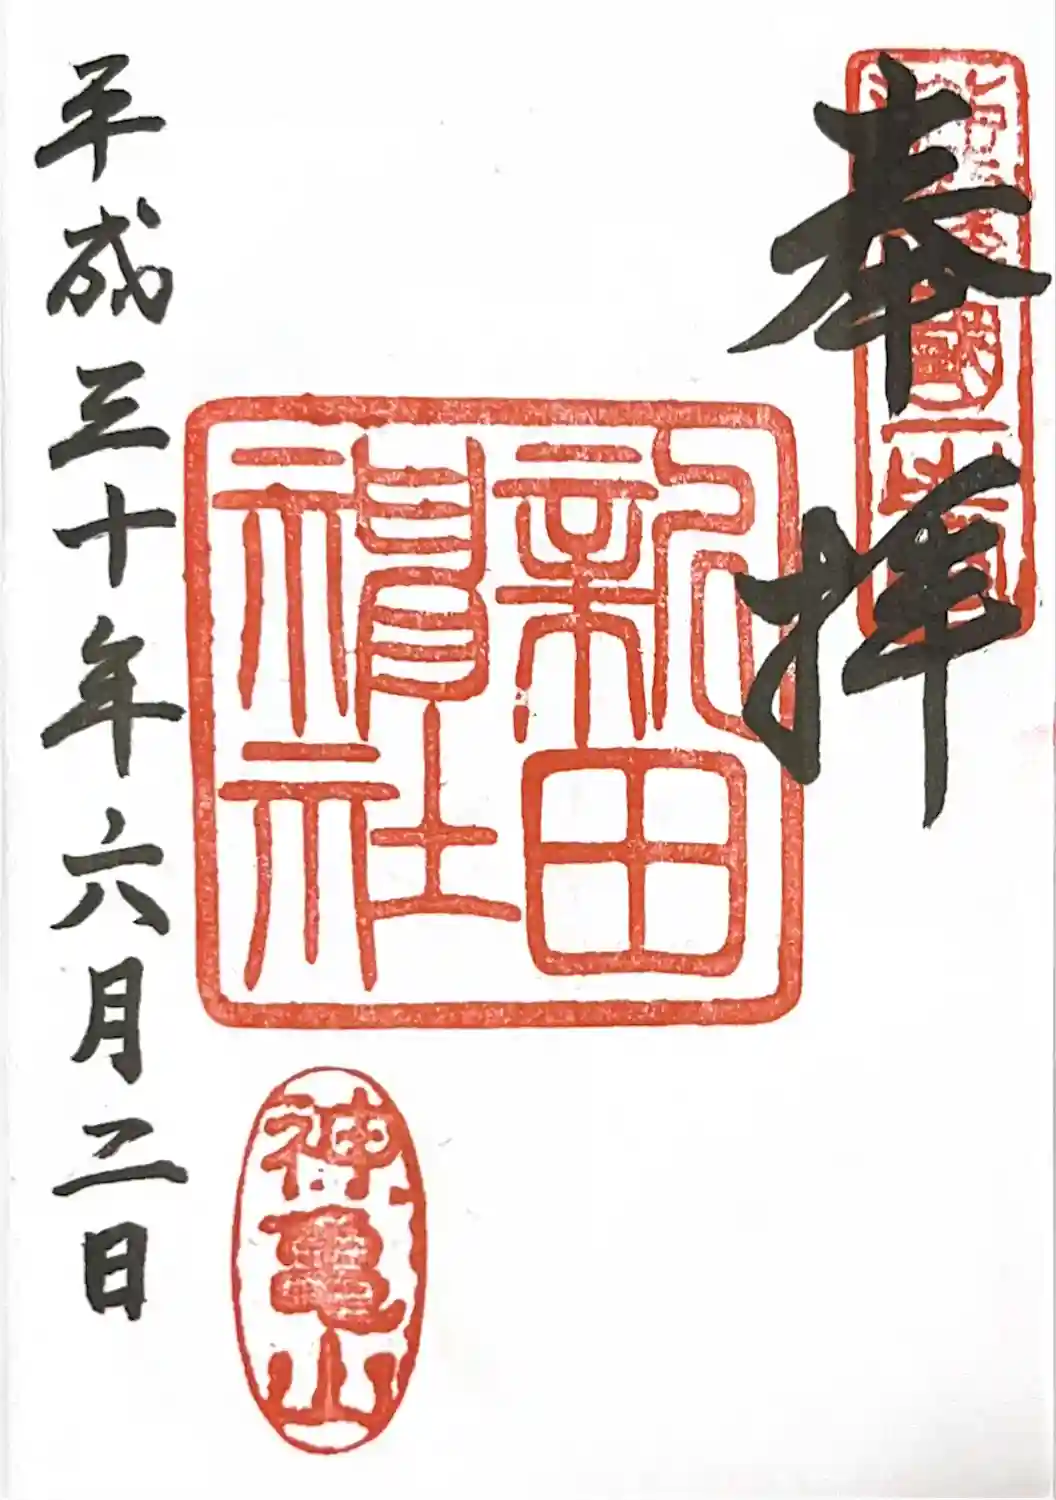 奉拝
新田
神社
神亀山
平成三十年六月二日